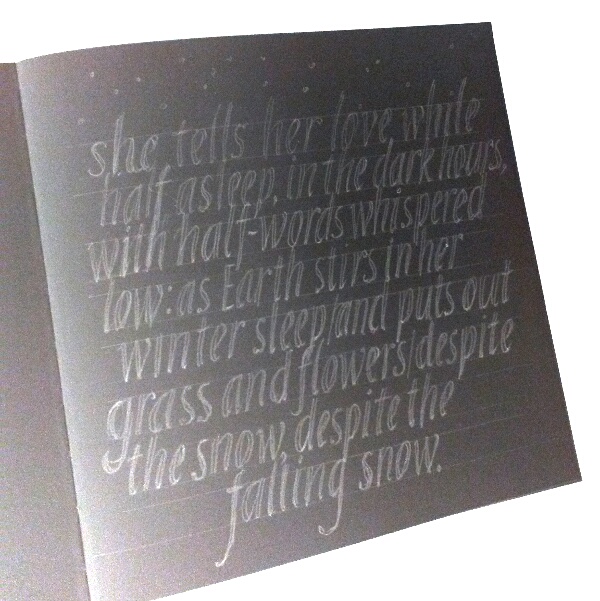 she tells her love while
half asleep, in the dark hours,
with half-words whispered
low: as Earth stirs in her
winter sleep/and puts out
grass and flowers/despite
the snow, despite the
falling snow.